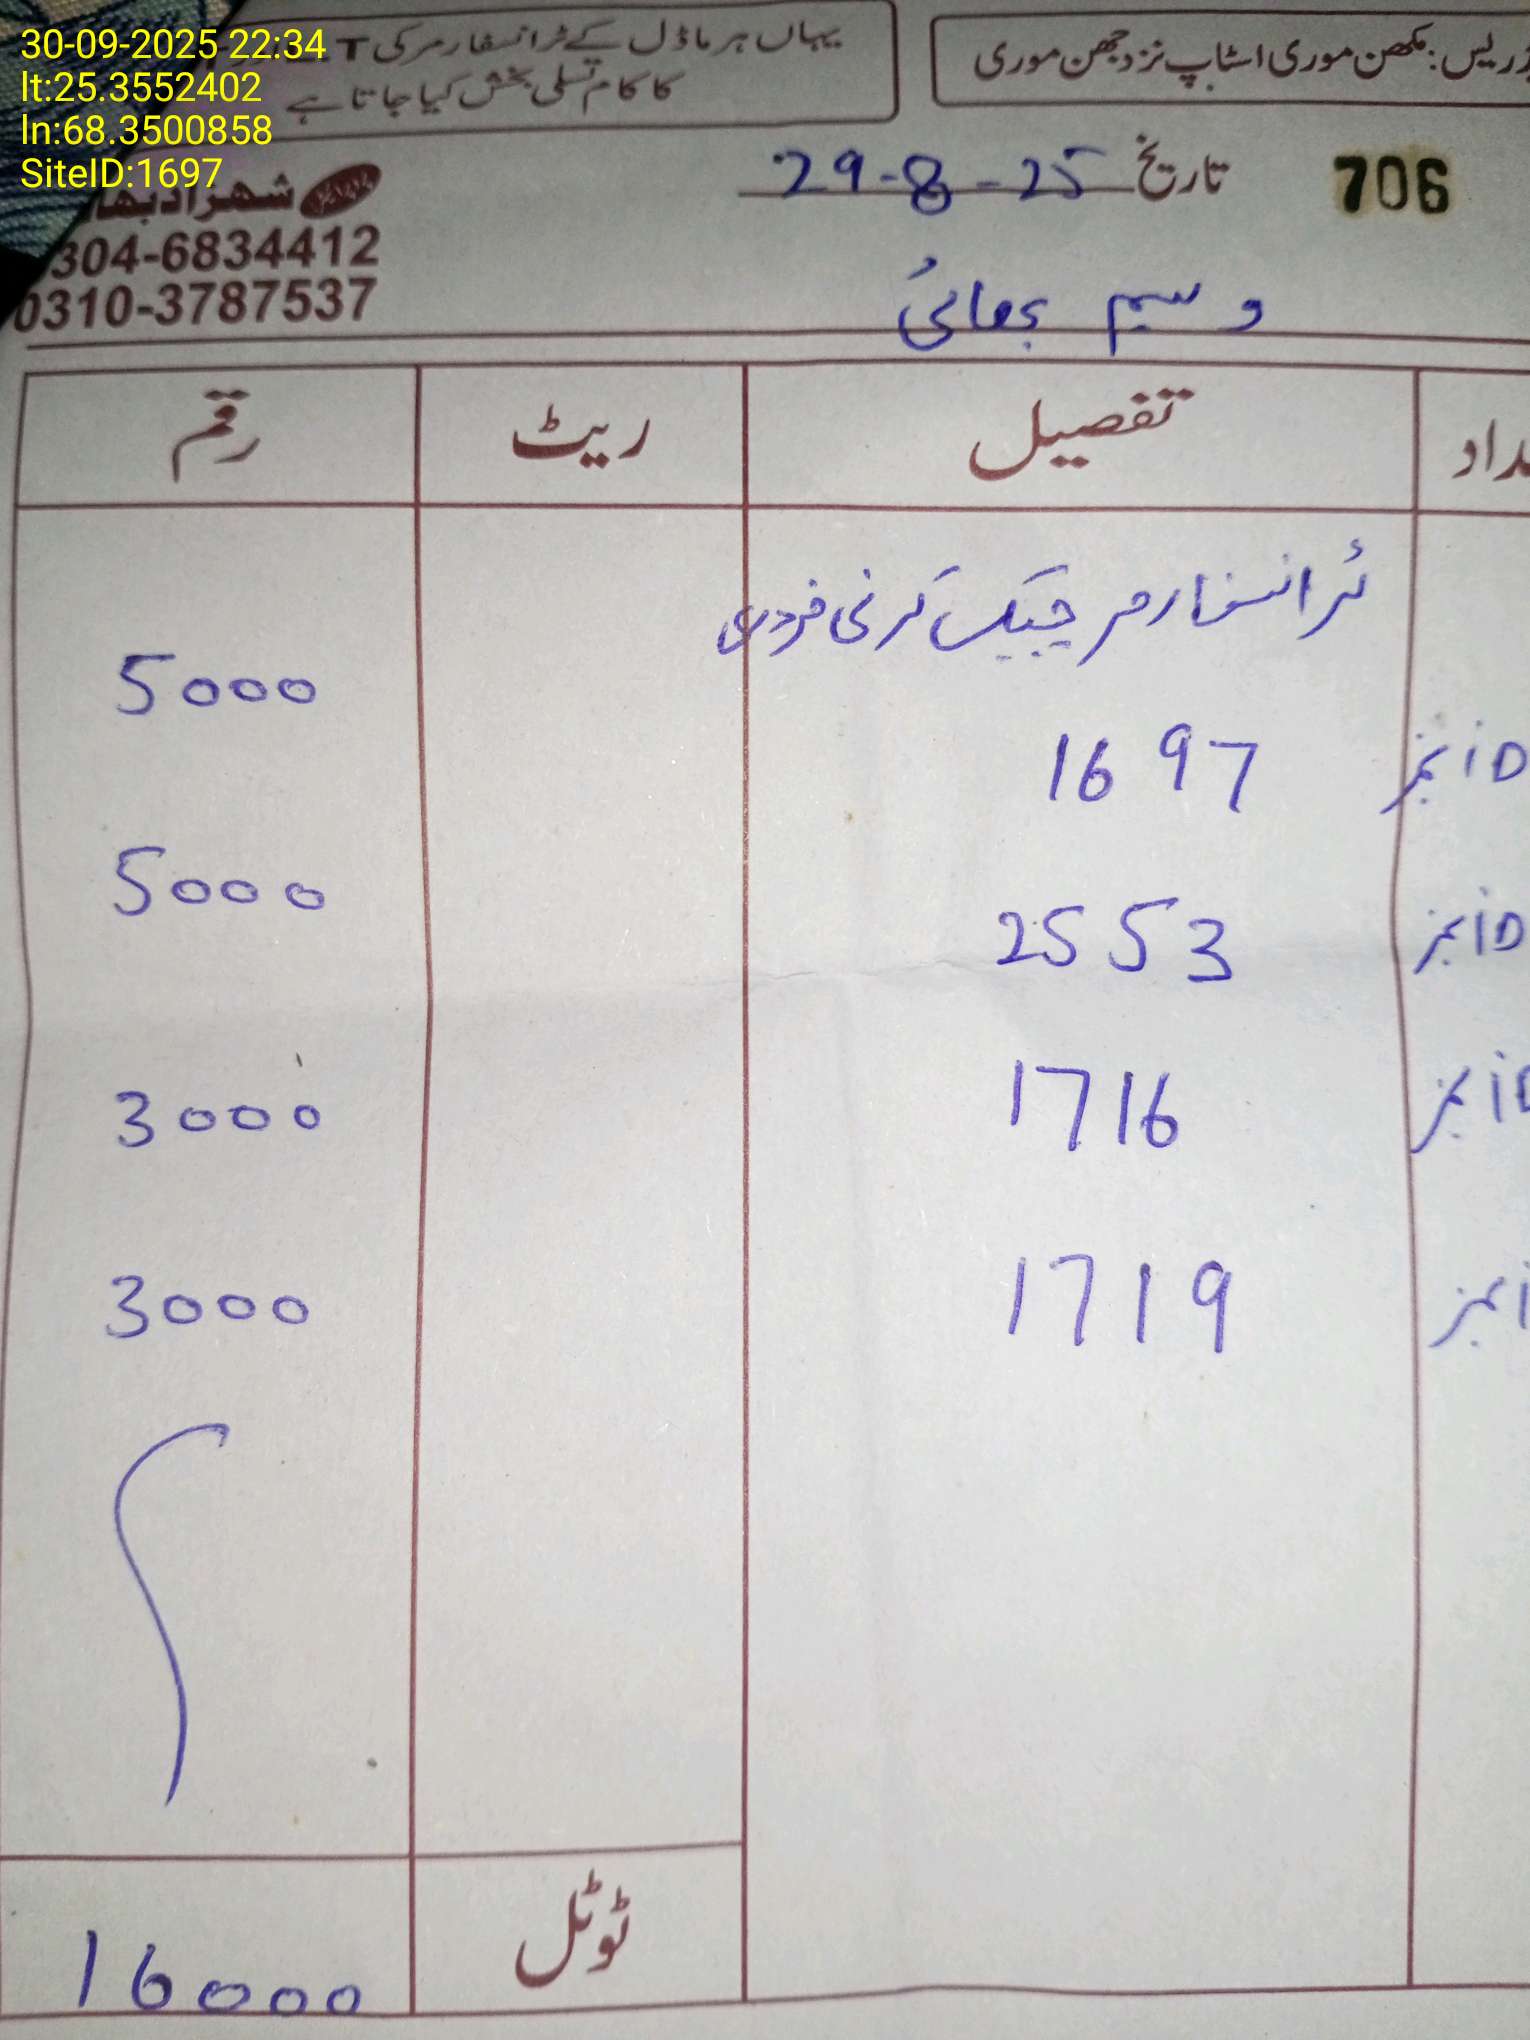 30-09-2025 22:34
lt:25.3552402
ln:68.3500858
SiteID:1697
یہاں ہر ماڈل کے ٹرانسفارمر کی T
کا کام تسلی بخش کیا جاتا ہے
مکھن موری اسٹاپ نزد جھن موری
706
تاریخ 29-8-25
شہزاد
304-6834412
0310-3787537
وسیم بھائی
تفصیل ریٹ رقم
ٹرانسفارمر چیک کرنی مزدوری
5000
iD نمبر 1697
5000
iD نمبر 2553
3000
iD نمبر 1716
3000
نمبر 1719
ٹوٹل 16000